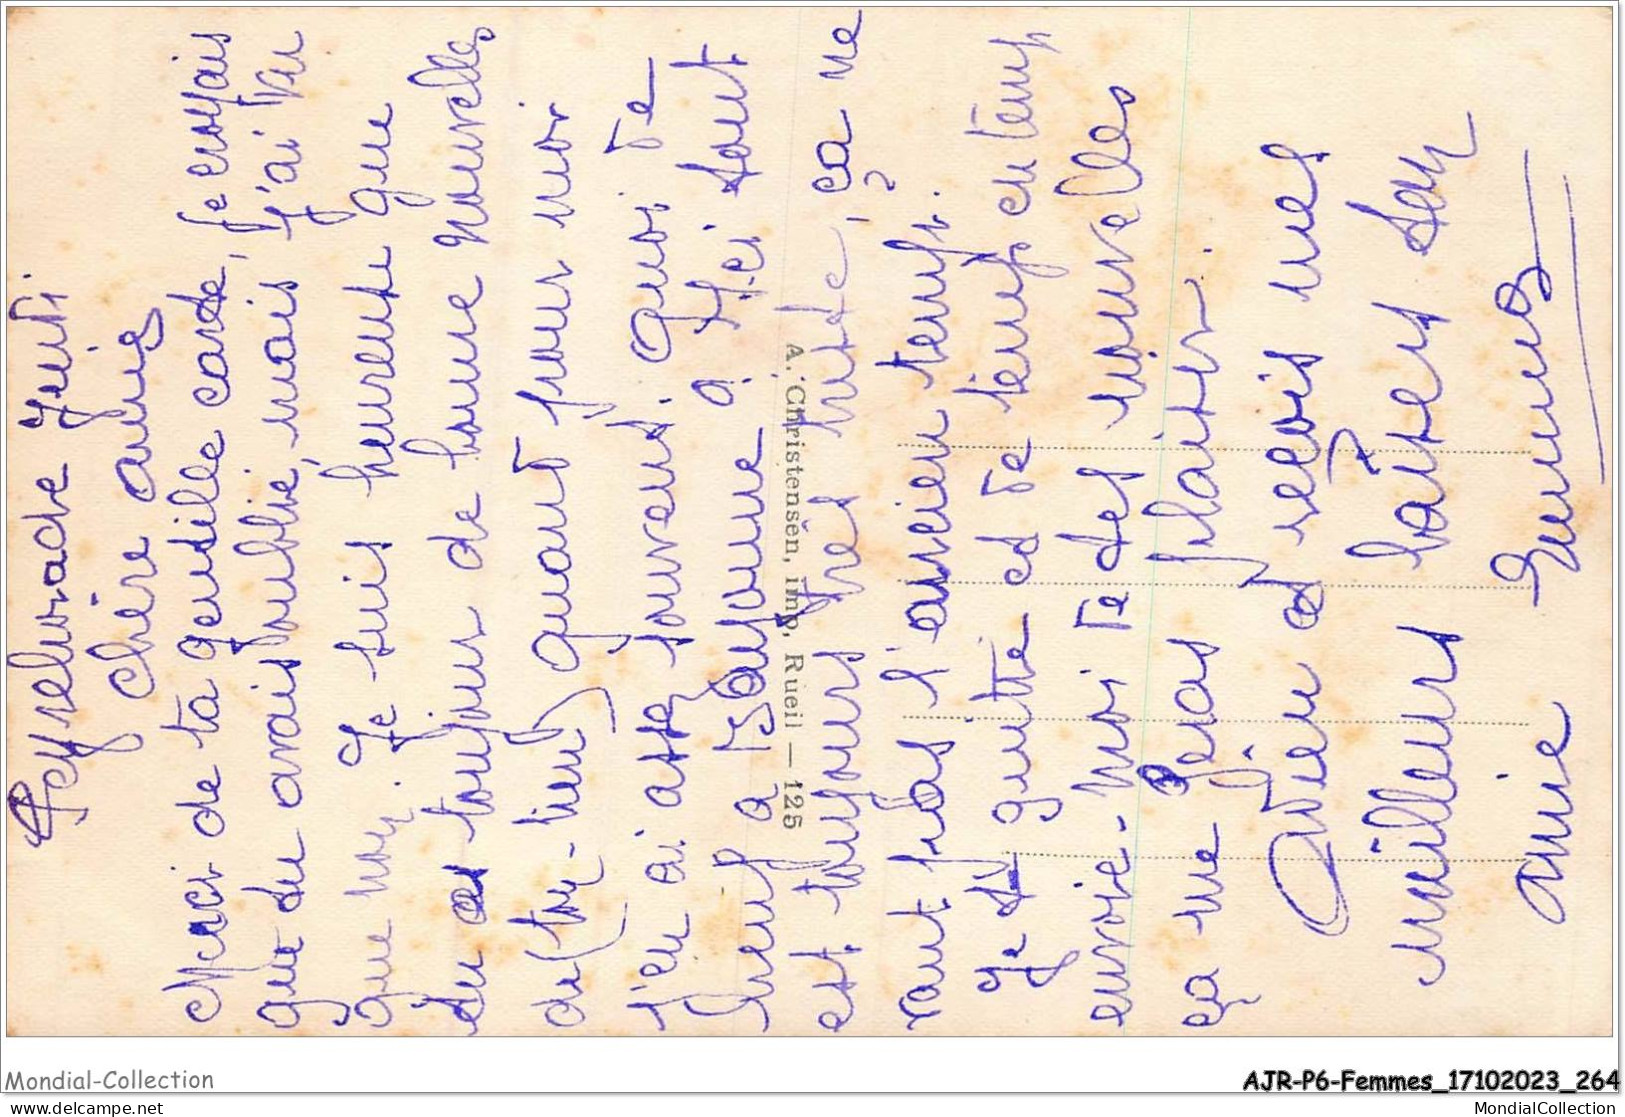 Peyrehorade Jeudi
Chère amie
Merci de ta gentille carte, je croyais
que tu avais oublié, mais j'ai vu
que non. Je suis heureuse que
tu es toujours de bonne nouvelles
de ton quant pour moi
j'en ai assez souvent. Quoi de
neuf a Bayonne ? Ici tout
est toujours très triste, ça ne
vaut pas l'ancien temps.
Je te quitte et de temps en temps
envoie-moi de des nouvelles
ça me feras plaisir.
Adieu et reçois mes
meilleurs baisers ton
amie
A. Christensen, imp, Rueil — 125
Mondial-Collection
AJR-P6-Femmes_17102023_264
delcampe.net
MondialCollection